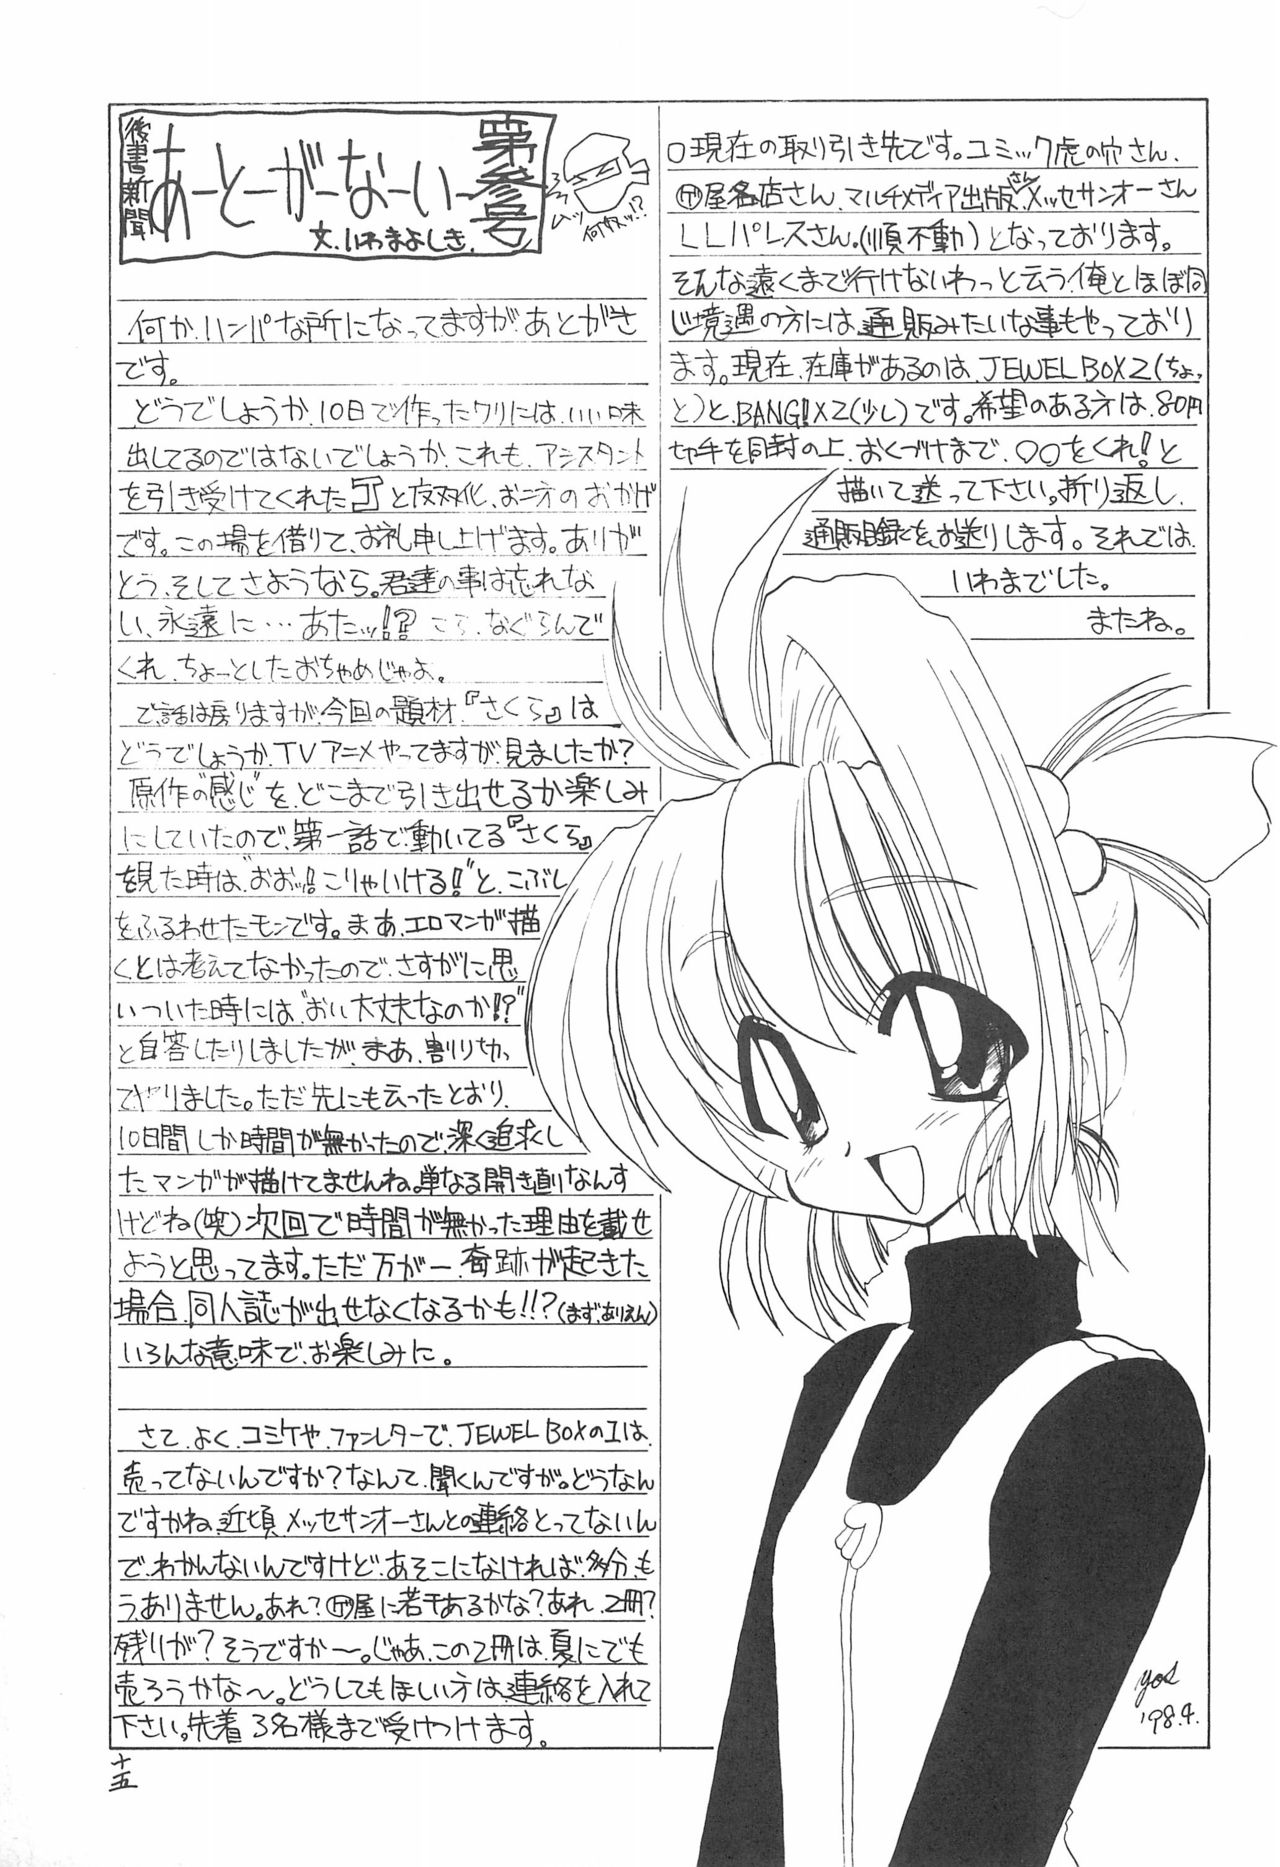 後書新聞
あーとーがーなーいー
第参号
文.いわまよしき.
ムッ
何ヤスッ!?
何か、ハンパな所になってますが、あとがき
です。
どうでしょうか、10日で作ったワリには、いい味
出してるのではないでしょうか、これも、アシスタント
を引き受けてくれた J と反対化、お二方のおかげ
です。この場を借りて、お礼申し上げます。ありが
とう、そしてさようなら。君達の事は忘れな
い、永遠に…あたッ!? こら、なぐらんで
くれ、ちょーとしたおちゃめじゃよ。
で、話は戻りますが、今回の題材、『さくら』は
どうでしょうか、TVアニメやってますが、見ましたか?
原作の“感じ”を、どこまで引き出せるか楽しみ
にしていたので、第一話で動いてる『さくら』
を見た時は、“おおッ!こりゃいける!”と、こぶし
をふるわせたモンです。まあ、エロマンガ描
くとは考えてなかったので、さすがに、思
いついた時には、“おい、大丈夫なのか!?”
と自答したりしましたが、まあ、割り切っ
てヤりました。ただ先にも云ったとおり、
10日間しか時間が無かったので、深く追求し
たマンガが描けてませんね。単なる開き直りなんす
けどね(笑)次回で時間が無かった理由を載せ
ようと思ってます。ただ万が一、奇跡が起きた
場合、同人誌が出せなくなるかも!!?(まず、ありえん)
いろんな意味で、お楽しみに。
さて、よく、コミケや、ファンレターで、JEWEL BOXの1は、
売ってないんですか?なんて、聞くんですが。どうなん
ですかね、近頃、メッセサンオーさんとの連絡とってないん
で、わかんないんですけど、あそこになければ、多分、も
う、ありません。あれ?㊉屋に若干あるかな?あれ、2冊?
残りが?そうですか〜。じゃあ、この2冊は、夏にでも
売ろうかな〜。どうしてもほしい方は、連絡を入れて
下さい。先着3名様まで受けつけます。
○現在の取り引き先です。コミック虎の穴さん、
屋名店さん、マルチメディア出版さん、メッセサンオーさん
LLパレスさん。(順不動)となっております。
そんな遠くまで行けないわっと云う、俺とほぼ同
じ境遇の方には、通販みたいな事もやっており
ます。現在、在庫があるのは、JEWEL BOX 2(ちょっ
と)と、BANG!X2(少し)です。希望のある方は、80円
切手を同封の上、おくづけまで、○○をくれ!と
描いて送って下さい。折り返し、
通販目録を、お送りします。それでは、
いわまでした。
またね。
yos
'98.4.
十五